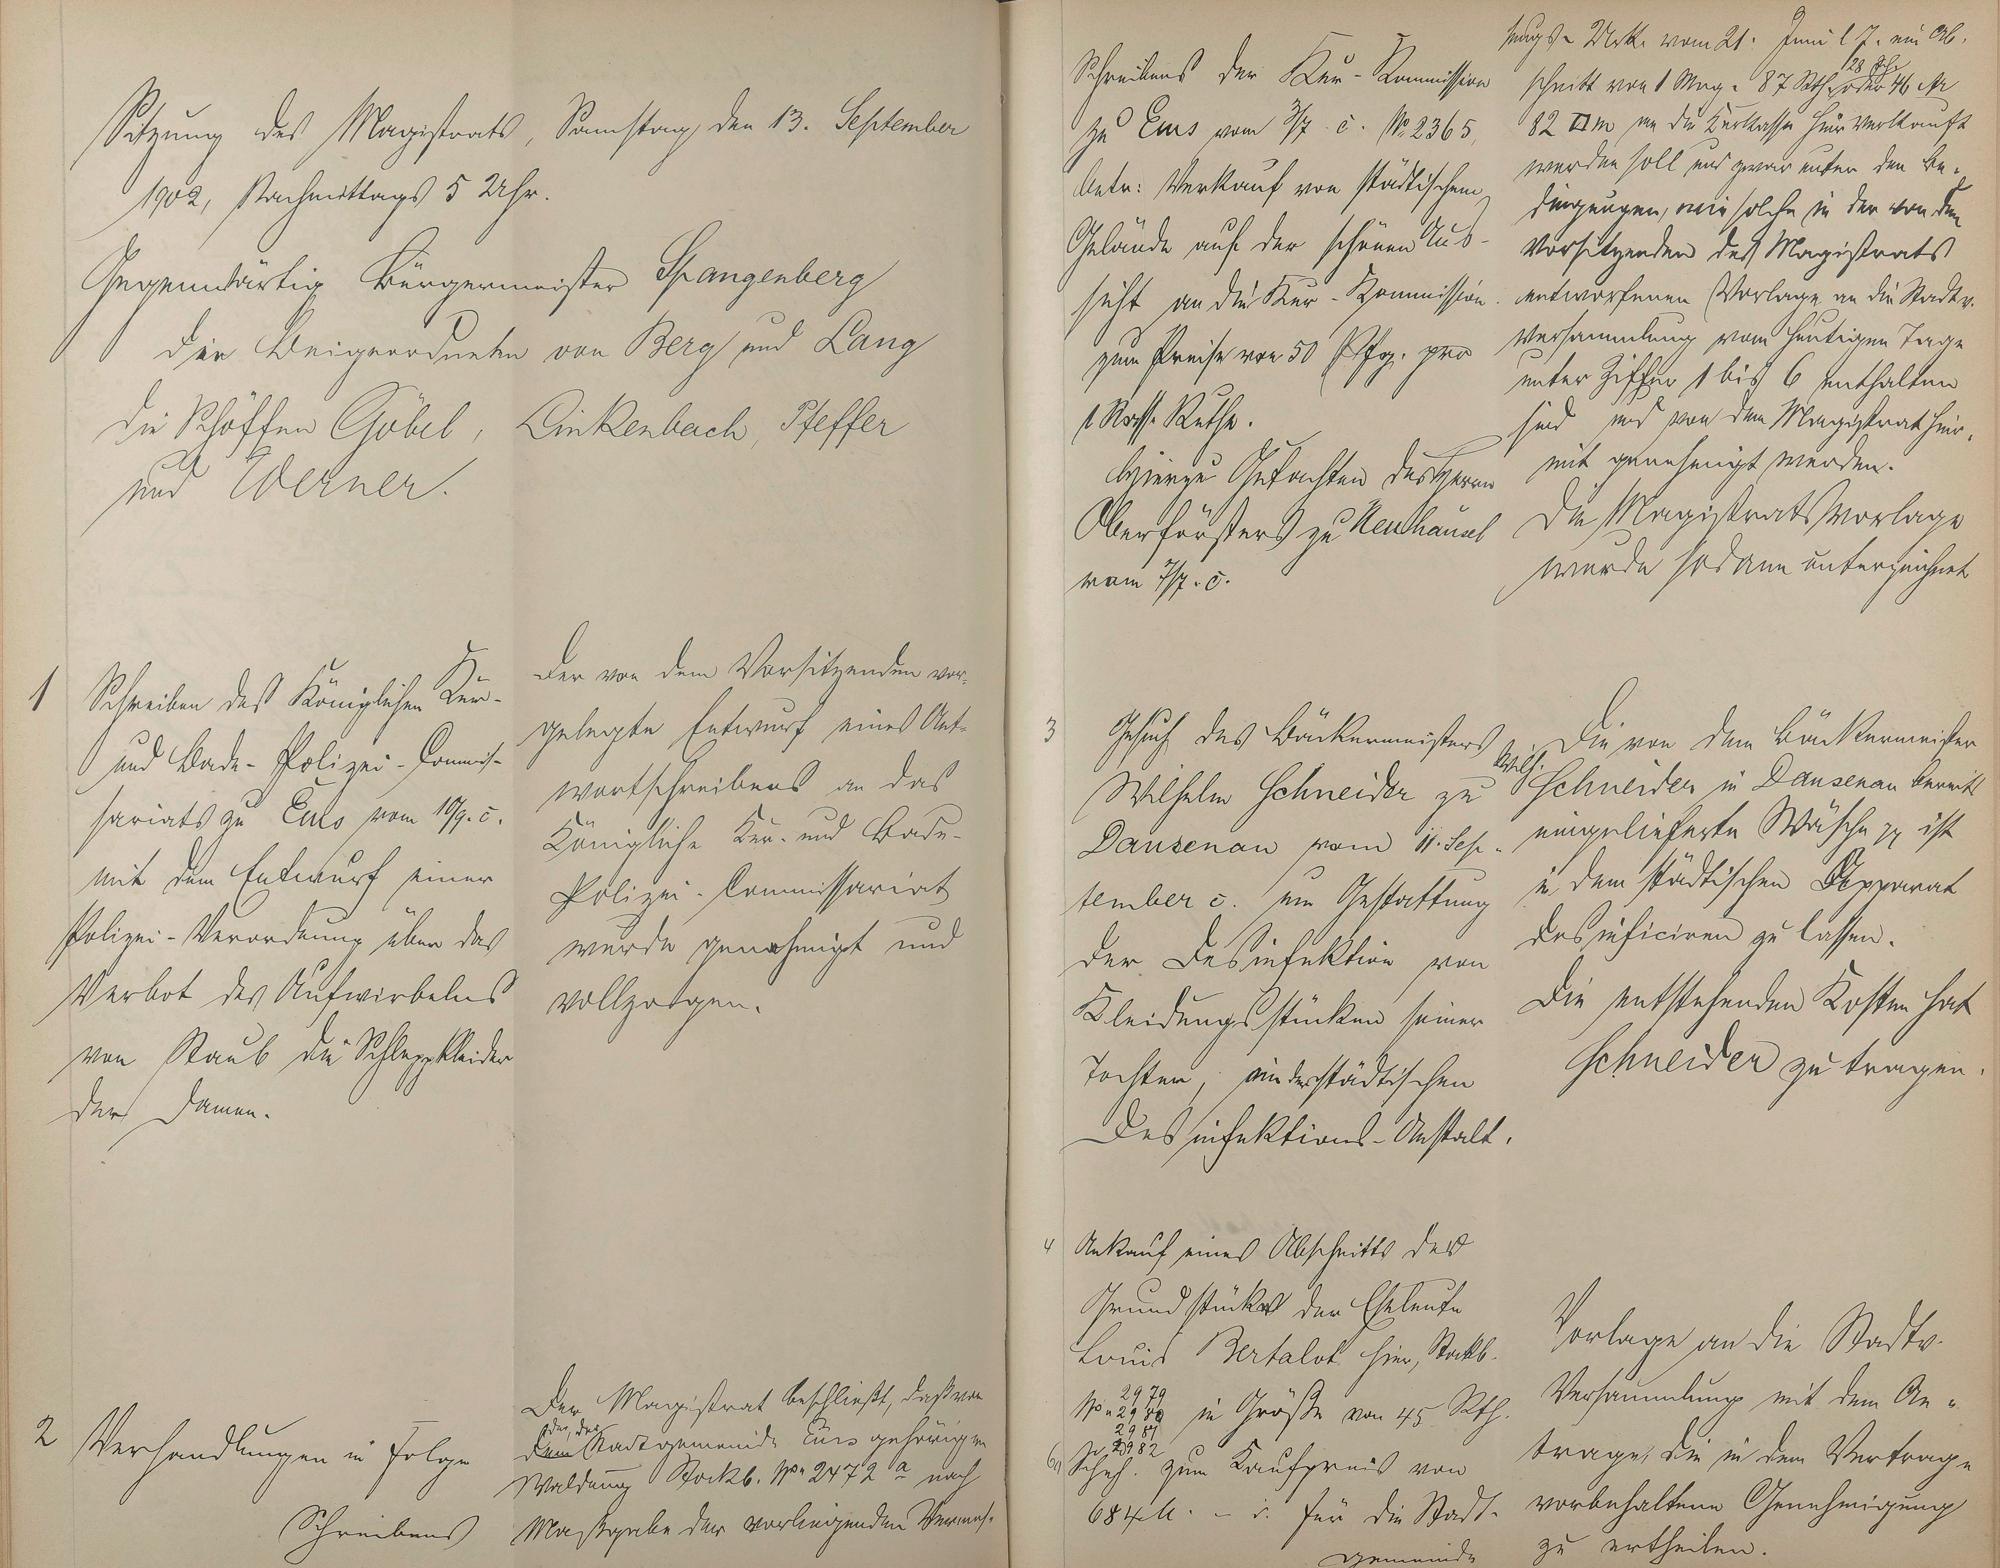 Sitzung des Magistrats, Samstag, den 13. September
1902, Nachmittags 5 Uhr.
Gegenwärtig Bürgermeister Spangenberg
die Beigeordneten von Berg und Lang
die Schöffen Göbel, Linkenbach, Pfeffer
und Werner.
1
Schreiben des Königlichen Kur-
und Bade-Polizei-Commis-
sariats zu Ems vom 10/9. c.
mit dem Entwurf einer
Polizei-Verordnung über das
Verbot des Aufwirbelns
von Staub die Schleppkleider
der Damen.
Der von dem Vorsitzenden vor-
gelegte Entwurf eines Ant-
wortschreibens an das
Königliche Kur- und Bade-
Polizei-Commissariat
wurde genehmigt und
vollzogen.
2
Verhandlungen in Folge
Schreibens
Der Magistrat beschließt, daß von
der, der
dem Stadtgemeinde Ems gehörigen
Waldung Stockb. No 2472 a nach
Maßgabe der vorliegenden Vermes-
Schreibens der Kur-Kommission
zu Ems vom 3/7. c. No 2365,
betr: Verkauf von städtischem
Gelände auf der schönen Aus-
sicht an die Kur-Kommission
zum Preise von 50 Pfg. pro
1 Ruthe.
Hierzu Gutachten des Herrn
Oberförsters zu Neuhäusel
vom 7/7. c.
sungs-Urk. vom 21. Juni l. J. ein Ab-
schnitt von 1 Mrg. 87 Rth 28 Sch. oder 46 Ar
82 □m an die Kurkasse hier verkauft
werden soll und zwar unter den Be-
dingungen, wie solche in der von dem
Vorsitzenden des Magistrats
entworfenen Vorlage an die Stadtv.
Versammlung vom heutigen Tage
unter Ziffer 1 bis 6 enthalten
sind und von dem Magistrat hier-
mit genehmigt werden.
Die Magistratsvorlage
wurde sodann unterzeichnet
3
Gesuch des Bäckermeisters
Wilhelm Schneider zu
Dausenau vom 11. Sep-
tember c. um Gestattung
der Desinfektion von
Kleidungsstücken seiner
Tochter, in der städtischen
Desinfektions-Anstalt.
Die von dem Bäckermeister
Wilh. Schneider in Dausenau bereits
eingelieferte Wäsche pp ist
in dem städtischen Apparat
desinficiren zu lassen.
Die entstehenden Kosten hat
Schneider zu tragen.
4
Ankauf eines Abschnitts des
Grundstücks der Eheleute
Louis Bertalot hier, Stockb.
No 2979 2980 2981 2982 in Größe von 45 Rth.
Sch. zum Kaufpreis von
684 M. – für die Stadt-
gemeinde
Vorlage an die Stadtv.
Versammlung mit dem An-
trage, die in dem Vertrage
vorbehaltene Genehmigung
zu ertheilen.